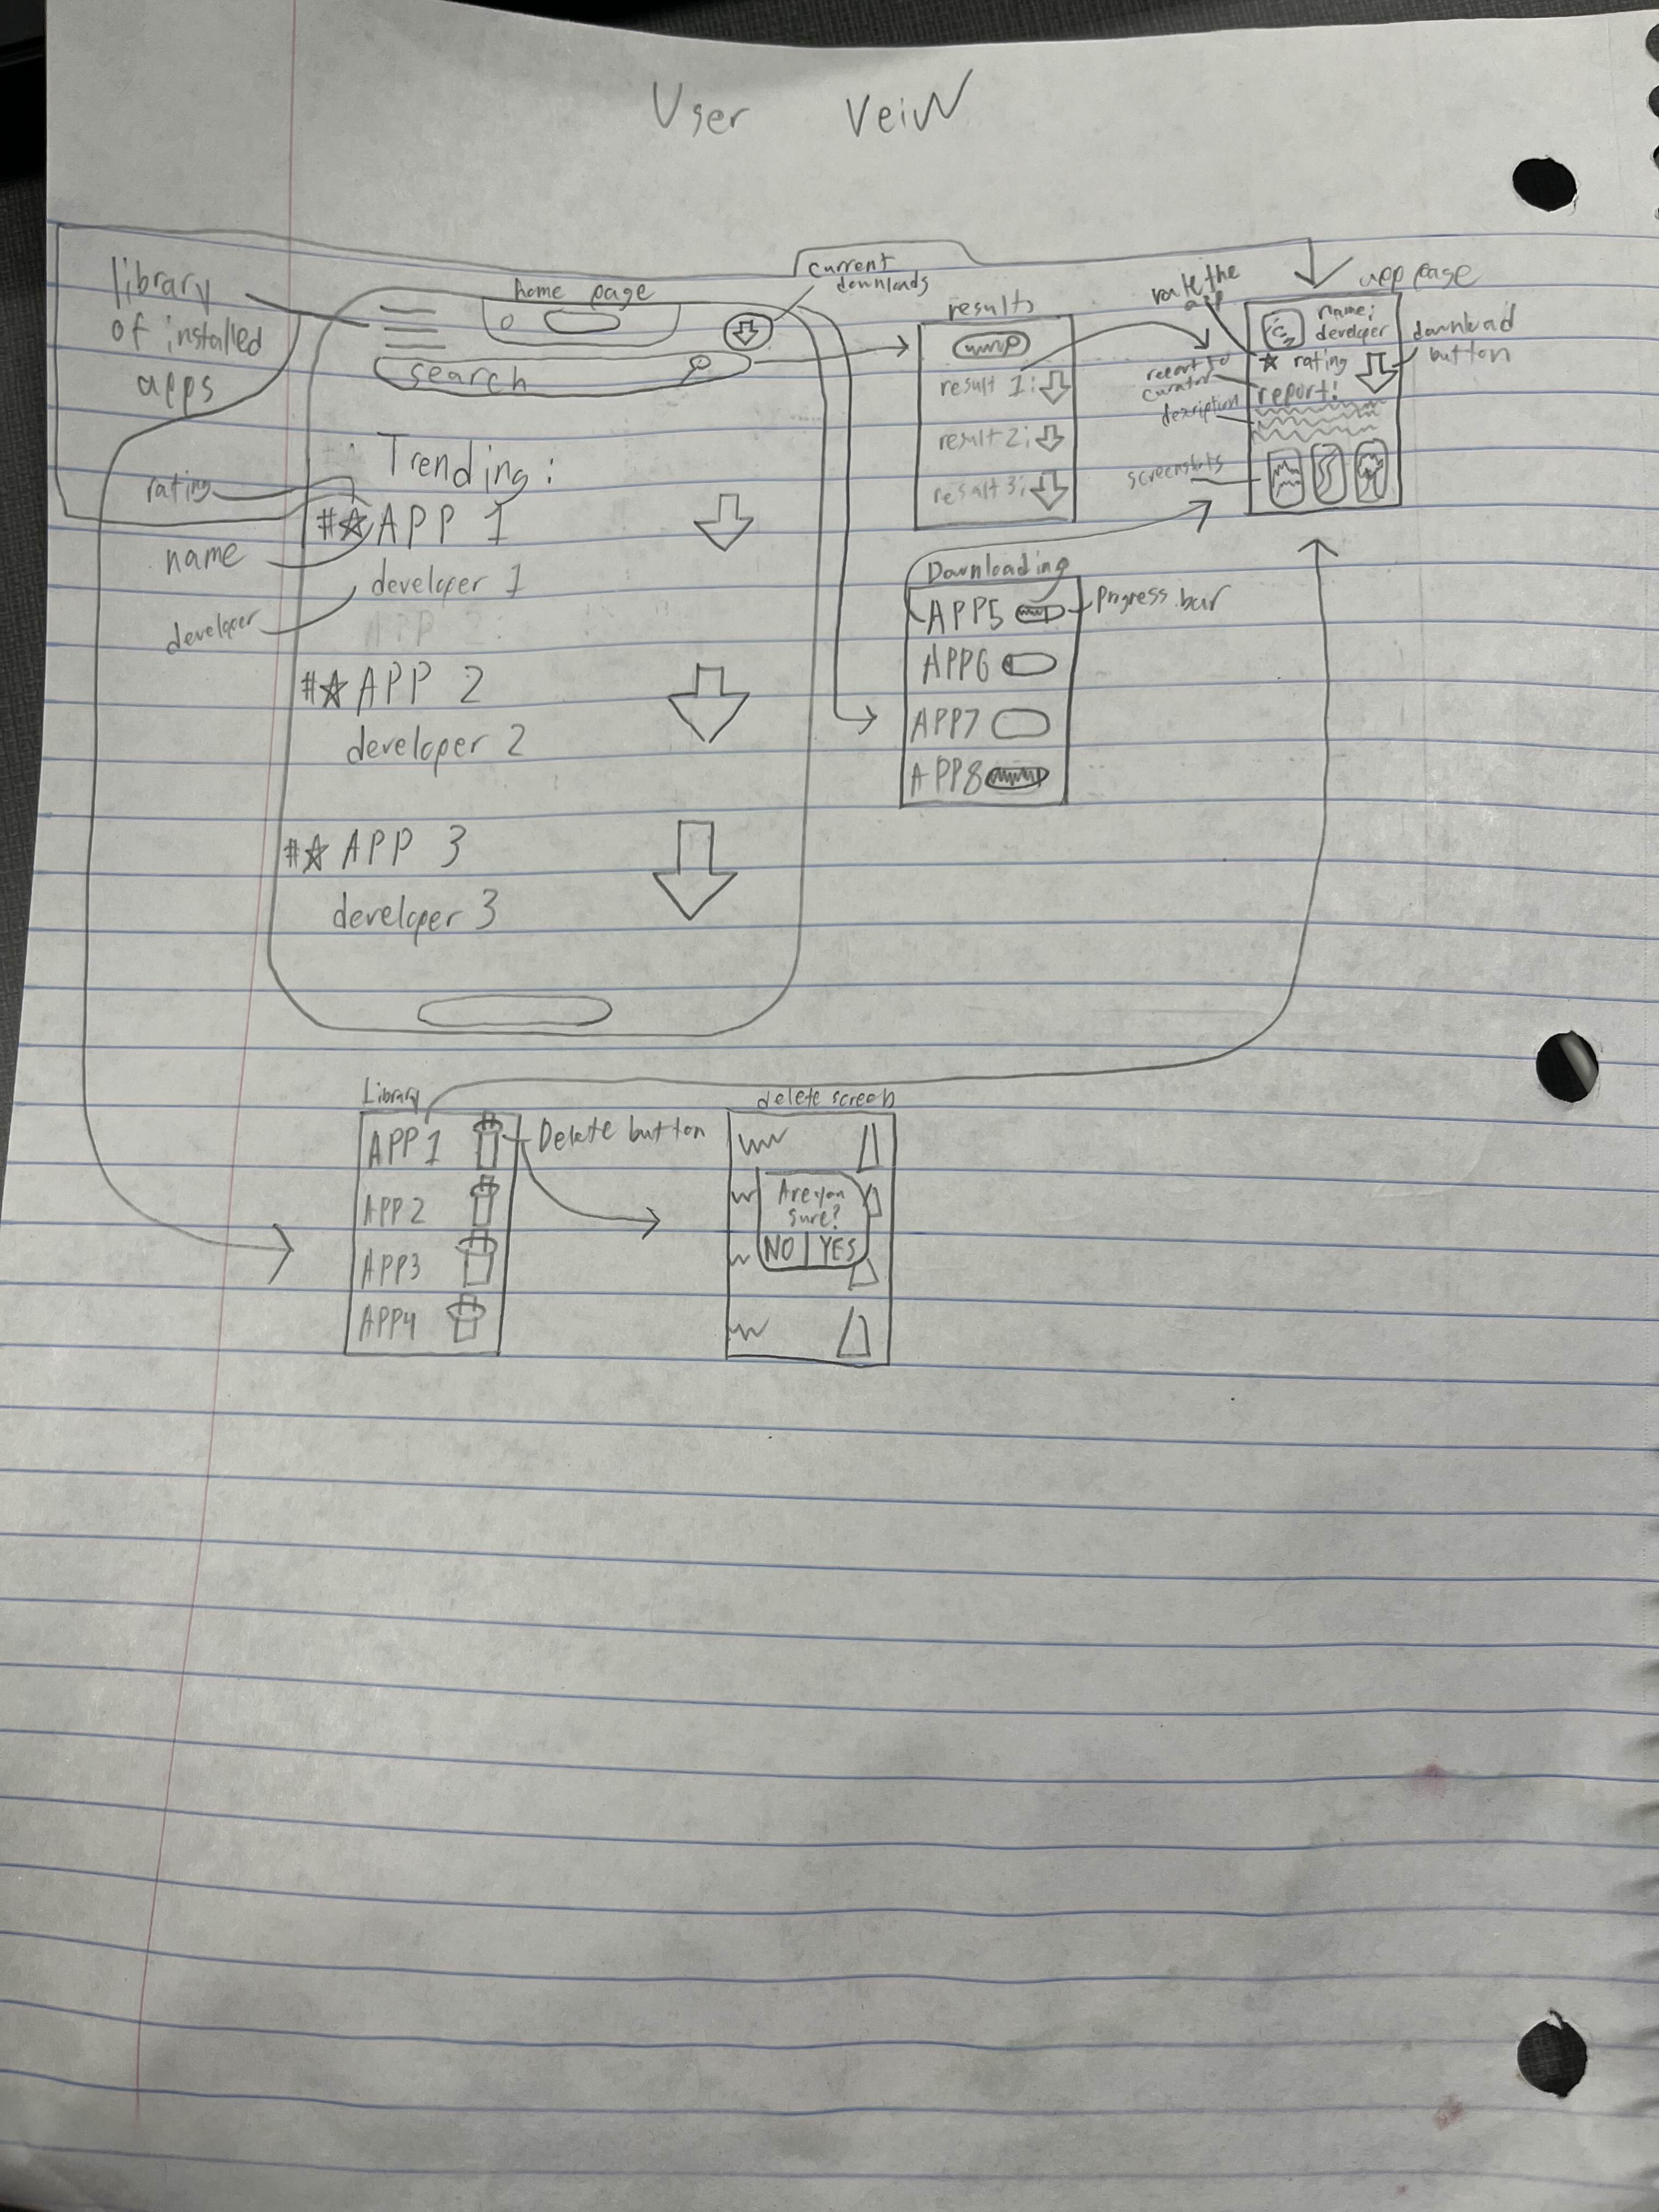 User VeiW
library
of installed
apps
home page
current
downloads
search
Trending:
rating
#☆APP 1
name
developer 1
developer
APP 2:
#☆APP 2
developer 2
#☆APP 3
developer 3
results
result 1:
result 2:
result 3:
rate the
app
app page
name:
developer
☆ rating
download
button
report to
curator
report!
description
screenshots
Downloading
APP5
Progress bar
APP6
APP7
APP8
Library
APP1
Delete button
APP2
APP3
APP4
delete screen
Are you
sure?
NO YES